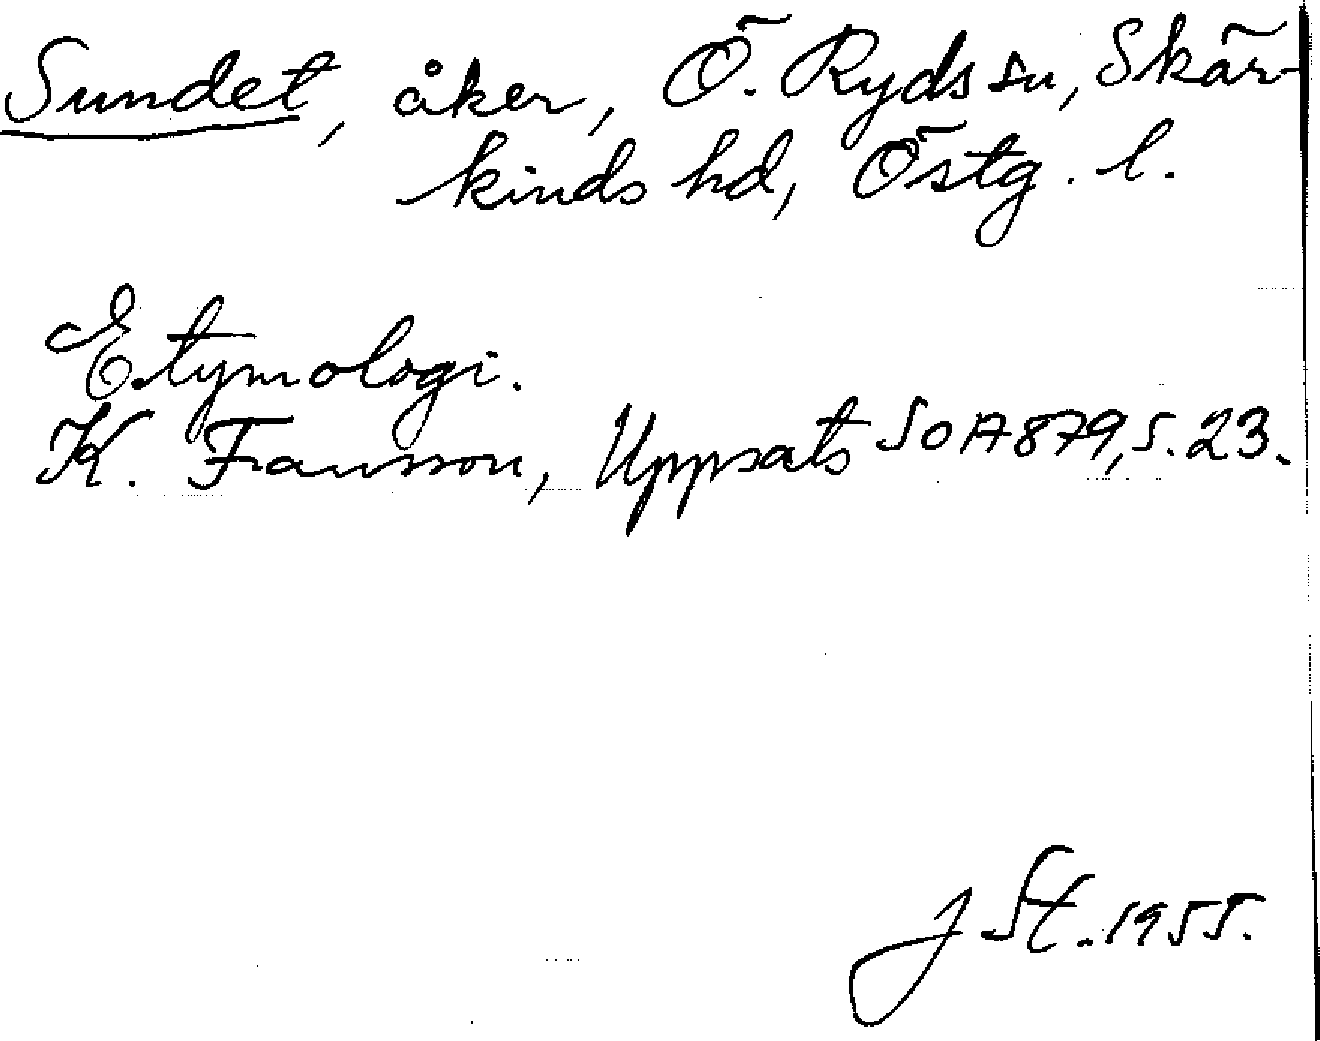 Sundet, åker, Ö. Ryds sn, Skär-
kinds hd, Östg. l.
Etymologi.
K. Fansson, Uppsats SOA 879, s. 23.
J St. 1955.